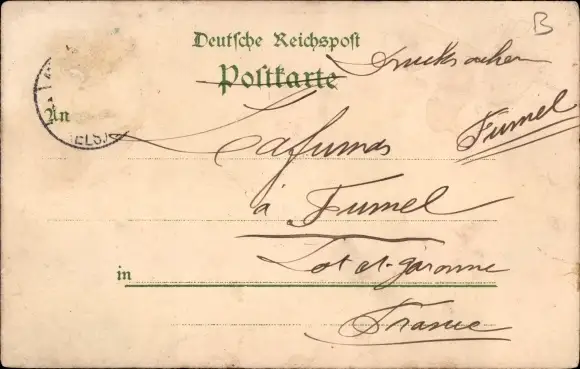 B
Deutsche Reichspost
Postkarte
Drucksachen
An
ELS.)
Lafumas
Fumel
à Fumel
Lot et-garonne
in
France